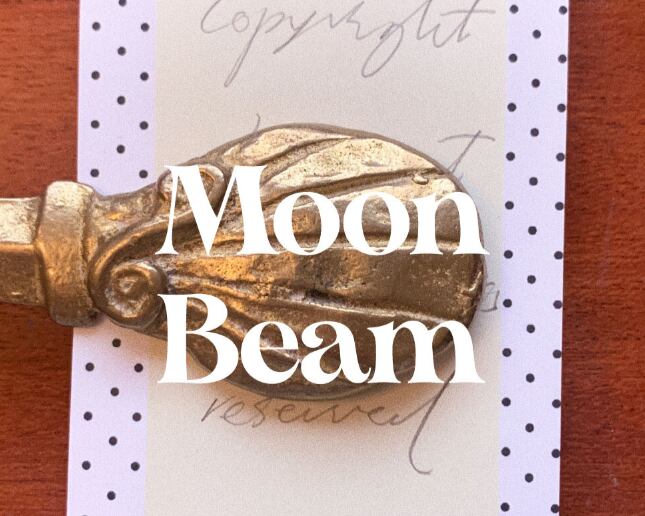 Copyright
Moon
Beam
reserved